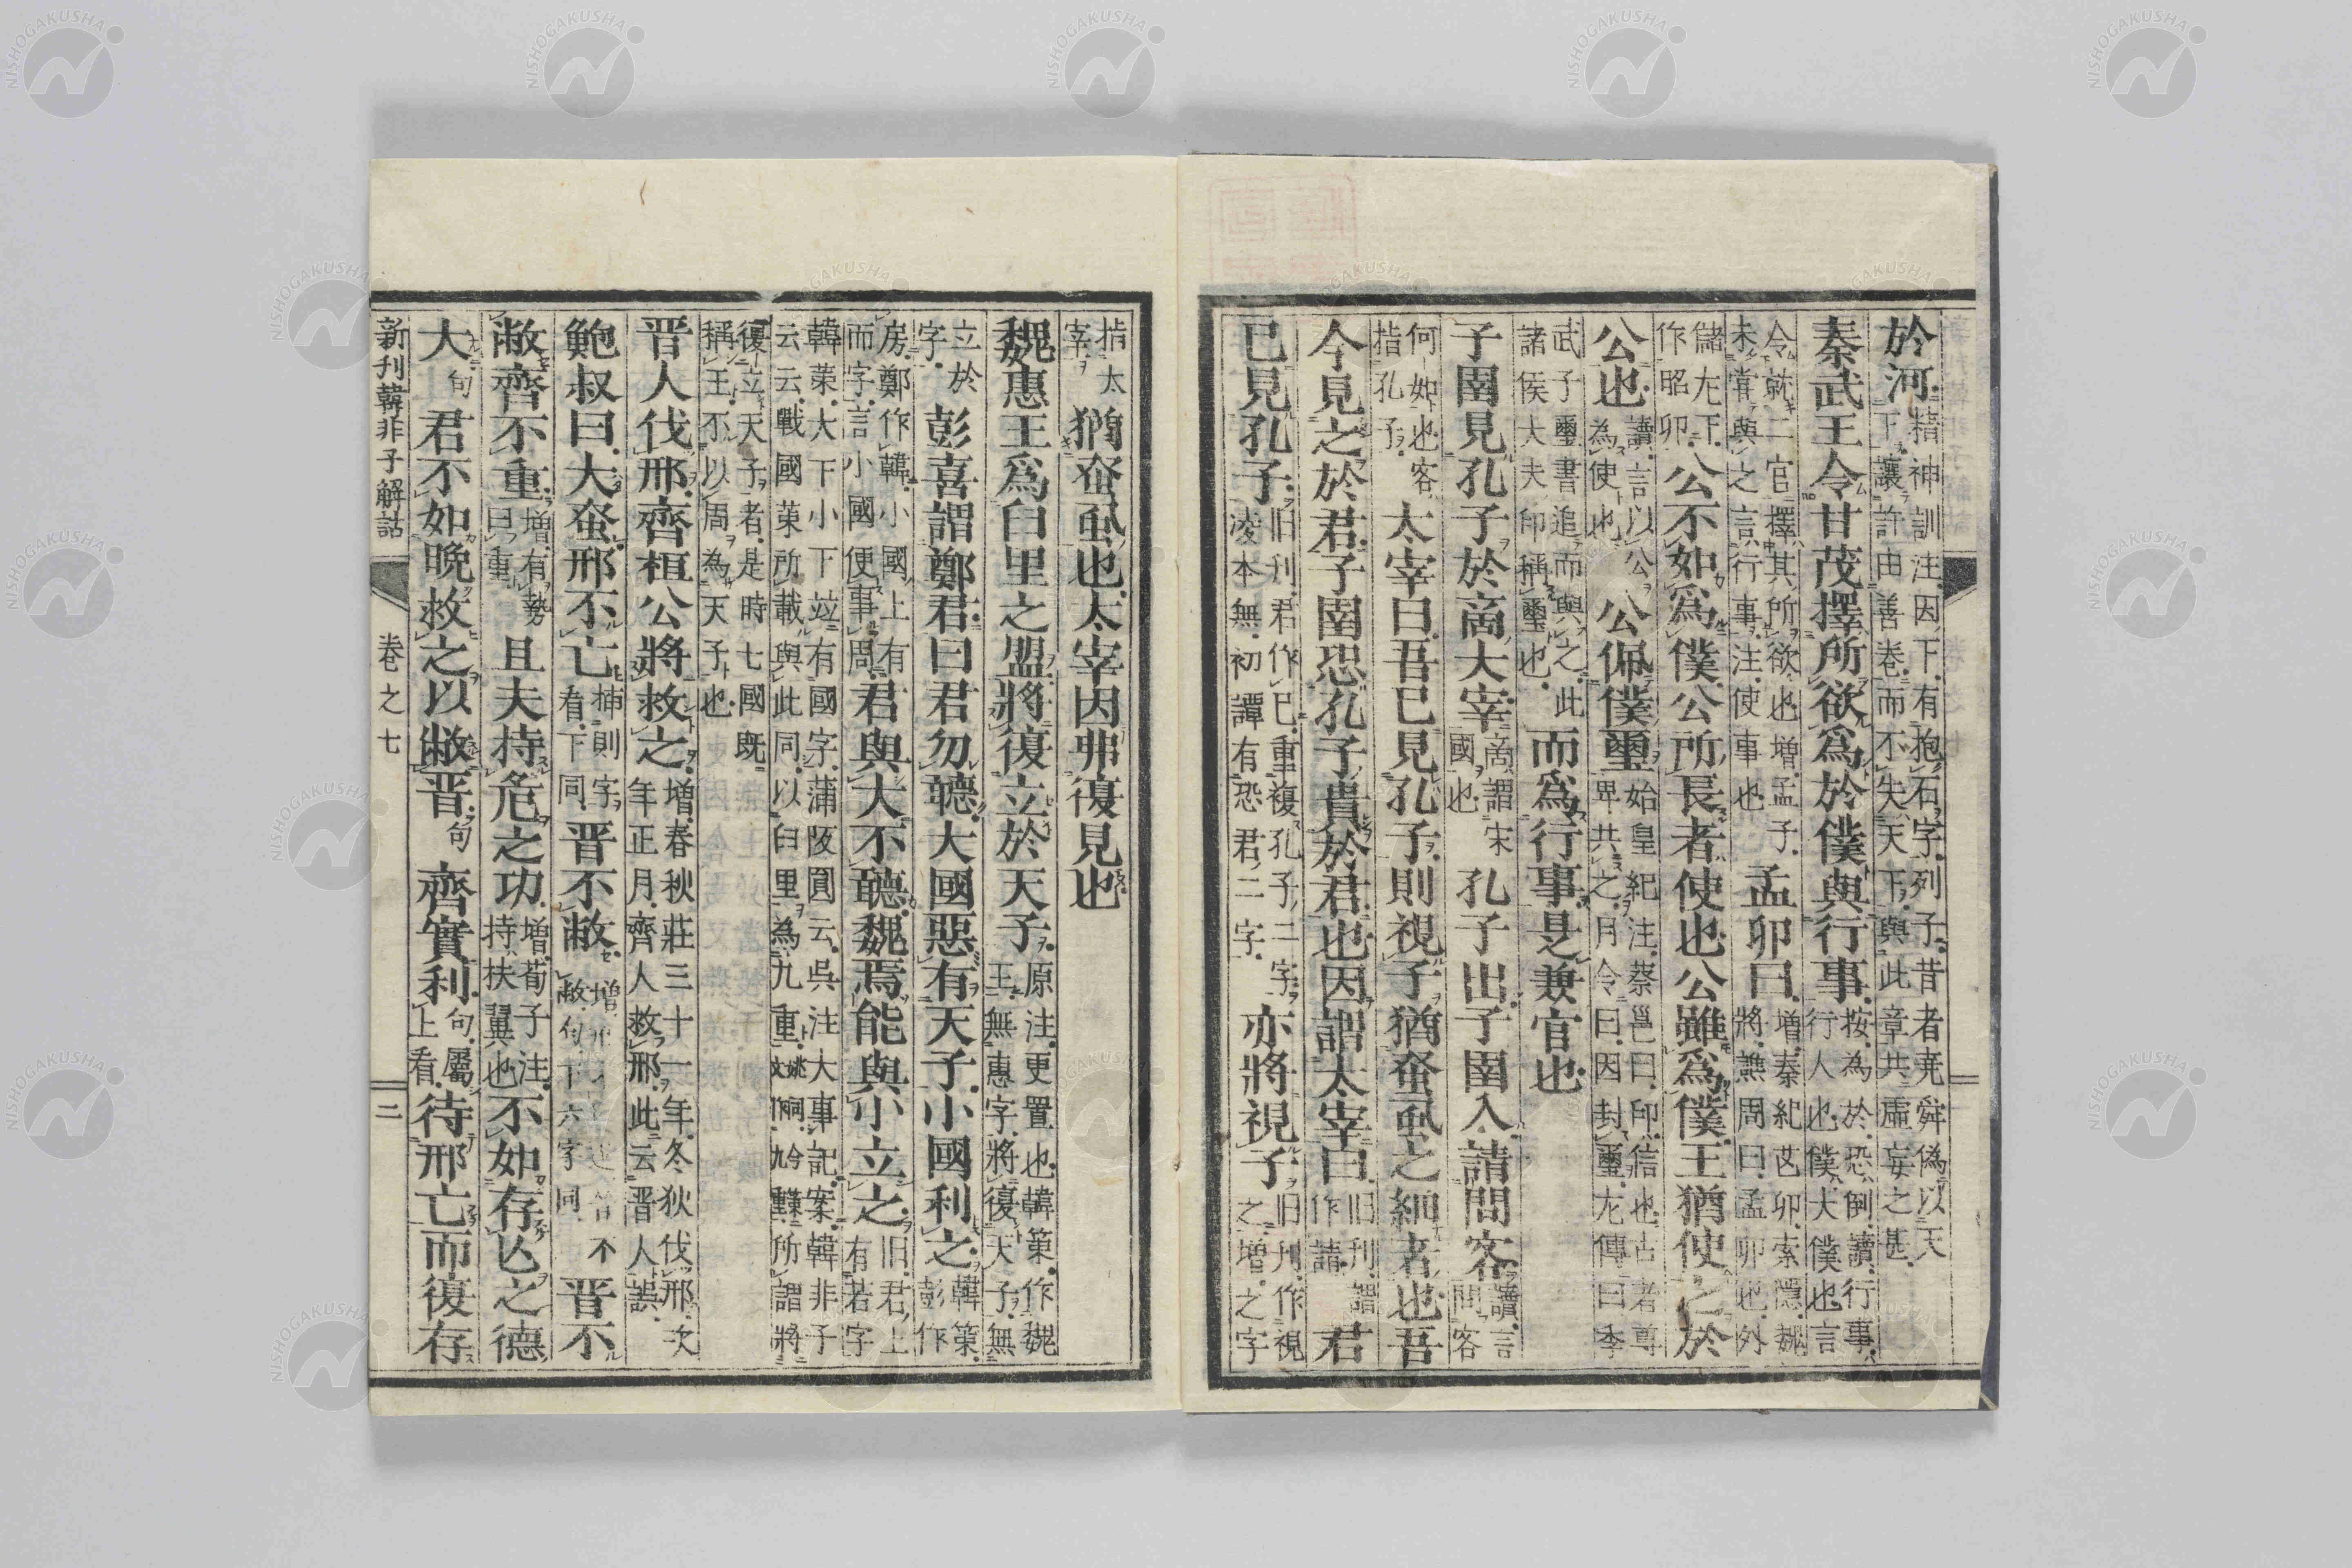 於河精神訓注因下有抱石字列子昔者堯舜僞以天
下讓許由善卷而不失天下與此章共虛妄之甚
秦武王令甘茂擇所欲爲於僕與行事按爲於恐倒讀行事
行人也僕大僕也言
令就二官擇其所欲也增孟子
未嘗與之言行事注使事也孟卯曰增秦紀芒卯索隱魏
將譙周曰孟卯也外
儲左下
作昭卯公不如爲僕公所長者使也公雖爲僕王猶使之於
公也讀言以公
爲使也公佩僕璽始皇紀注蔡邕曰印信也古者尊
卑共之月令曰因封璽左傳曰季
武子璽書追而與之此
諸侯大夫印稱璽也而爲行事是兼官也
子圉見孔子於商大宰商謂宋
國也孔子出子圉入請問客讀言
問客
何如也客
指孔子太宰曰吾已見孔子則視子猶蚤虱之細者也吾
今見之於君子圉恐孔子貴於君也因謂太宰曰旧刋謂
作請君
已見孔子旧刋君作已重複孔子二字
凌本無初譚有恐君二字亦將視子旧刋作視
之增之字
指太
宰猶蚤虱也太宰因弗復見也
魏惠王爲臼里之盟將復立於天子原注更置也韓策作魏
王無惠字將復天子無
立於
字彭喜謂鄭君曰君勿聽大國惡有天子小國利之韓策
彭作
房鄭作韓小國上有
而字言小國便事周君與大不聽魏焉能與小立之旧君上
有若字
韓策大下小下竝有國字蒲阪圓云吳注大事記案韓非子
云云戰國策所載與此同以臼里爲九重姚
文所謂將
復立天子者是時七國既
稱王不以周爲天子也
晋人伐邢齊桓公將救之增春秋莊三十二年冬狄伐邢次
年正月齊人救邢此云晋人誤
鮑叔曰大蚤邢不亡插則字
看下同晋不敝增
敝句下六字同不晋不
敝齊不重增有勢
曰重且夫持危之功增荀子注
持扶翼也不如存亡之德
大句君不如晚救之以敝晋句齊實利句屬
上看待邢亡而復存
新刋韓非子解詁　卷之七　二